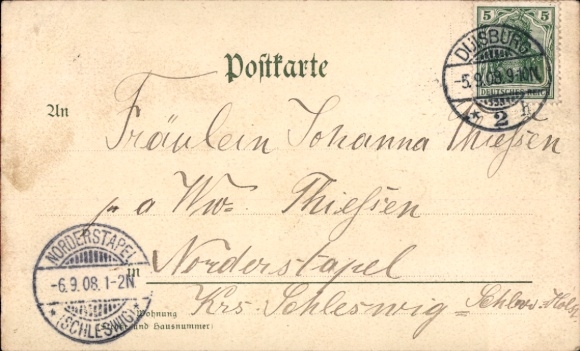 5 5
DEUTSCHES REICH
DUISBURG
-5.9.08.9-10N.
* 2 h
Postkarte
An
Fräulein Johanna Thießen
p. a Ww. Thießen
NORDERSTAPEL
-6.9.08.1-2N.
* (SCHLESWIG) *
in Norderstapel
Krs. Schleswig = Schlesw. Holst.
Wohnung
und Hausnummer)